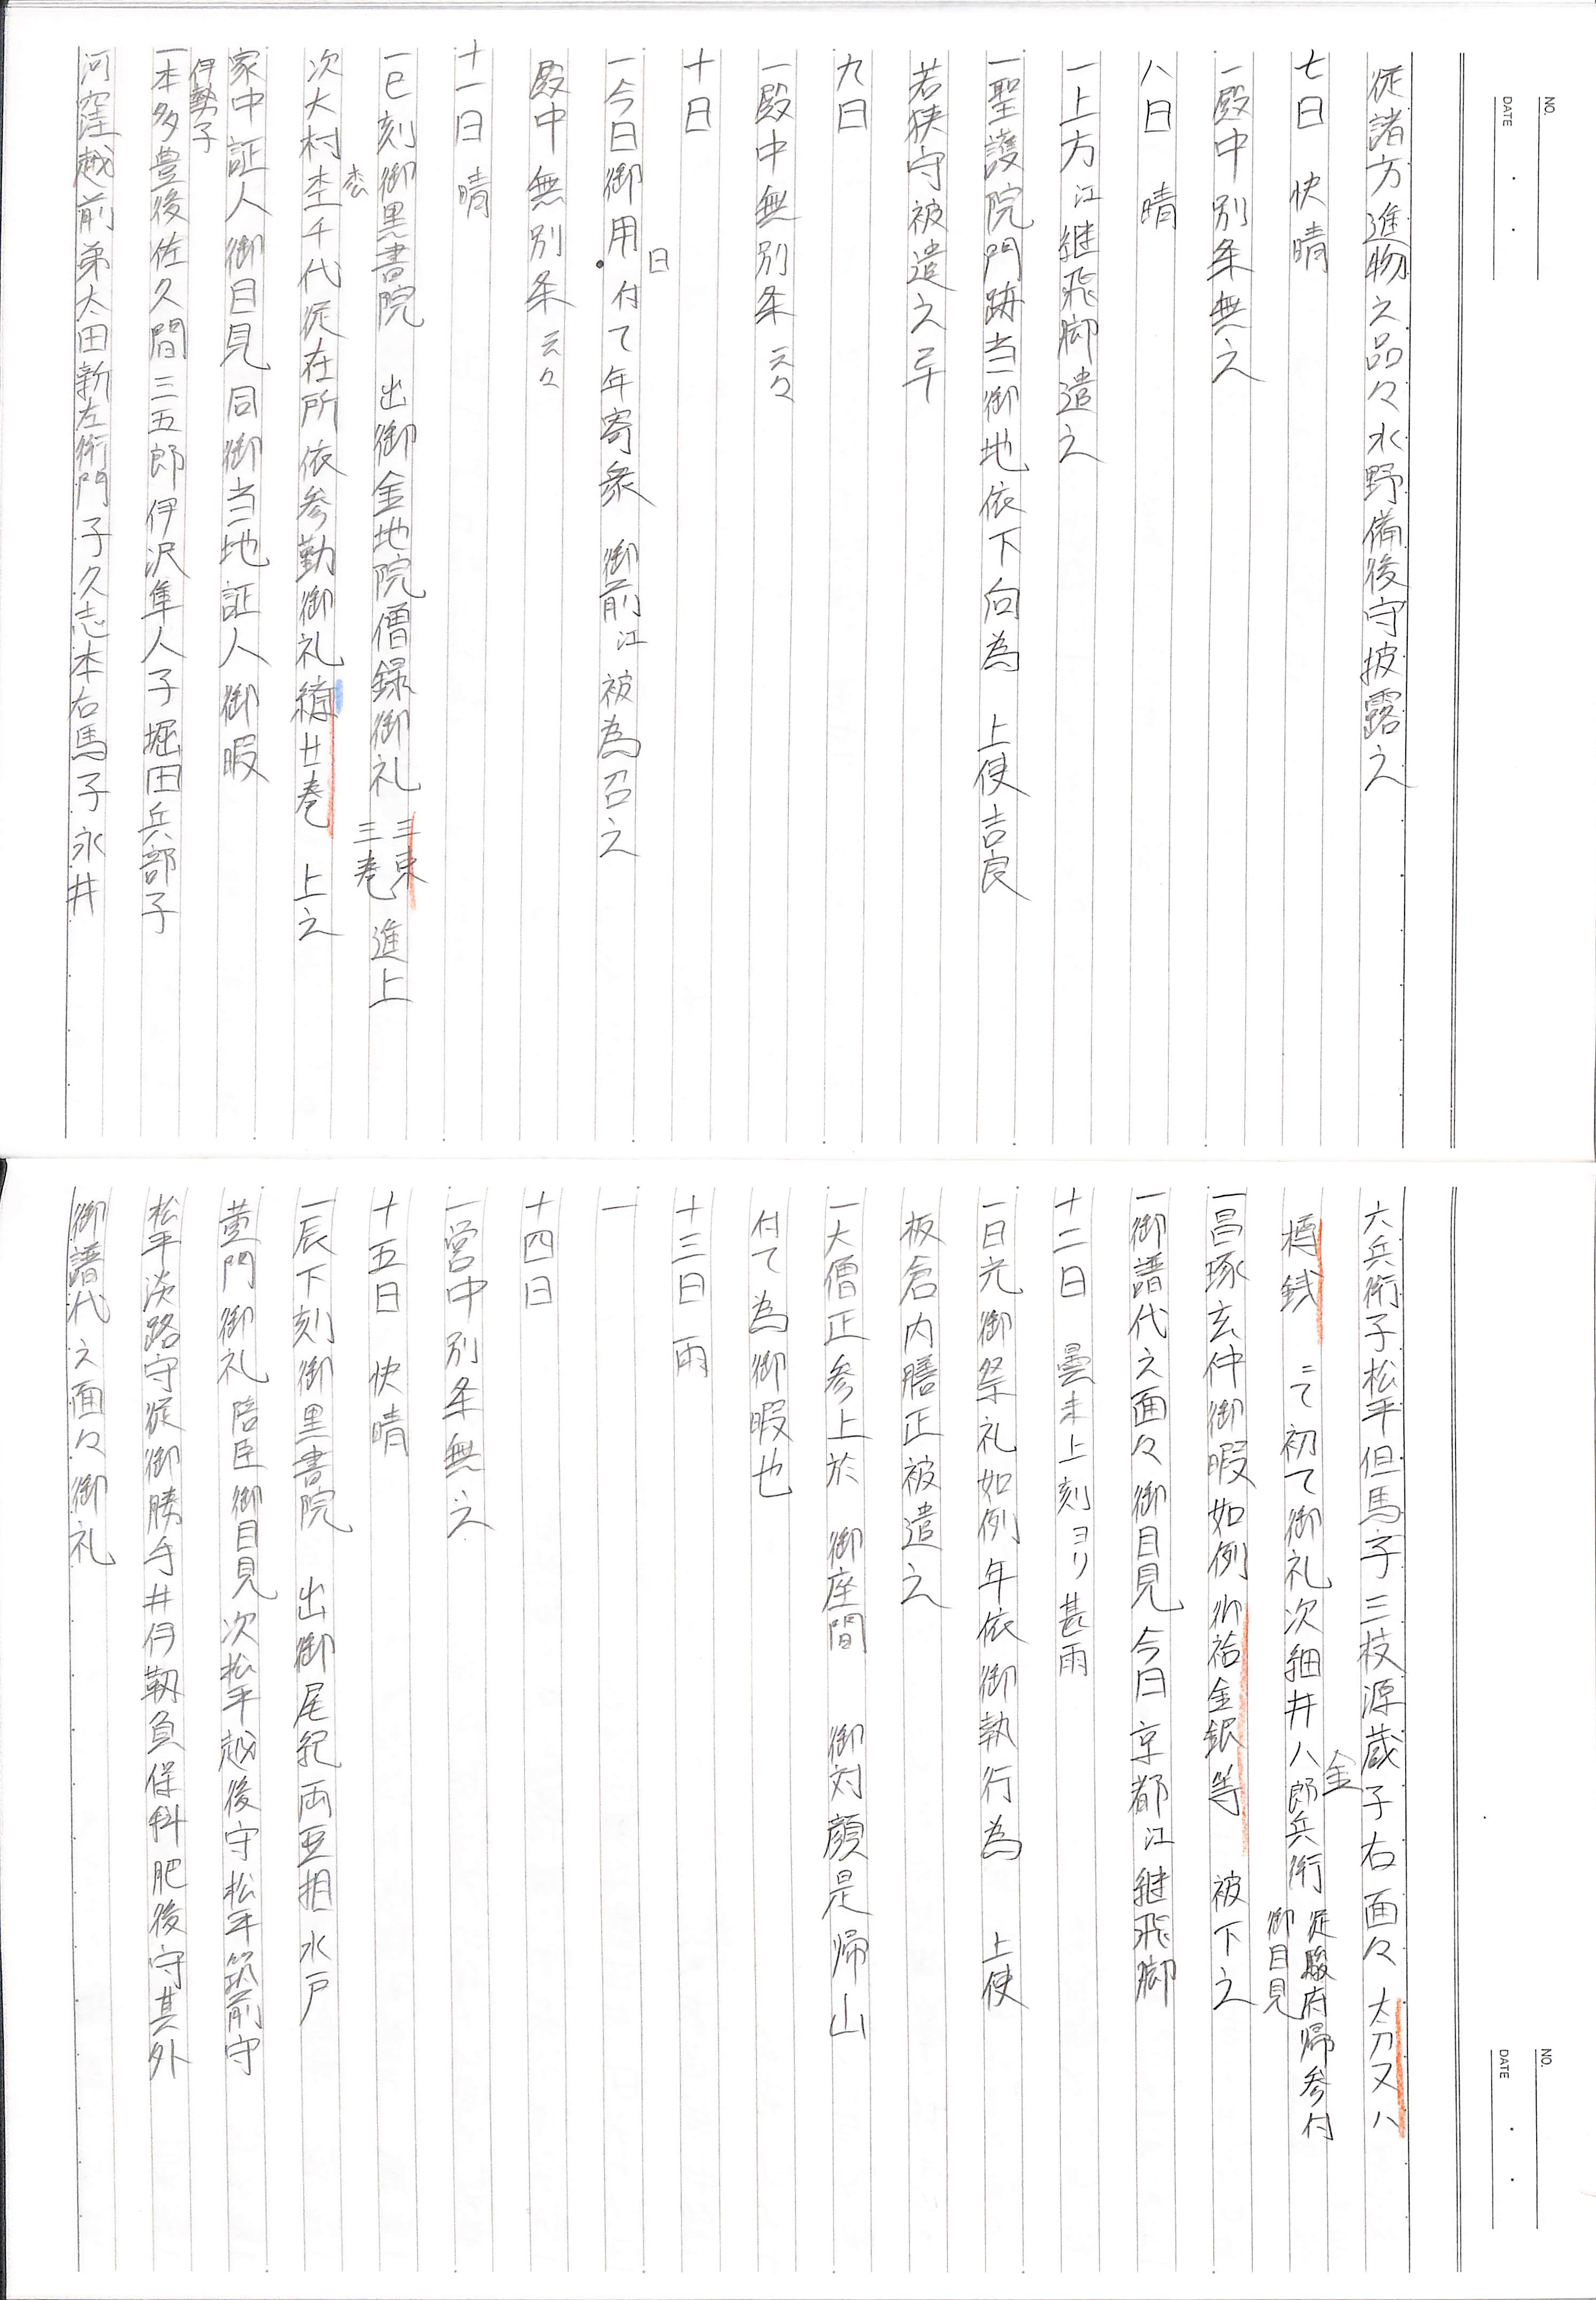 NO.
DATE
従諸方進物之品々水野備後守披露之
七日 快晴
一殿中別条無之
八日 晴
一上方江継飛脚遣之
一聖護院門跡当御地依下向為 上使吉良
若狭守被遣之
九日
一殿中無別条云々
十日
日
一今日御用付て年寄衆 御前江被為召之
殿中無別条云々
十一日 晴
一巳刻御黒書院 出御金地院僧録御礼 三束 三巻 進上
次大村 千代従在所依参勤御礼 廿巻 上之
家中証人御目見同御当地証人御暇
伊勢子
一本多豊後佐久間三五郎伊沢隼人子堀田兵部子
河窪越前弟太田新左衛門子久志本右馬子永井
NO.
DATE
六兵衛子松平但馬子三枝源蔵子右面々 太刀又ハ
樽銭 ニて初て御礼次細井八郎兵衛 従駿府帰参付 御目見
金
一昌琢玄仲御暇如例御袷金銀等 被下之
一御譜代之面々御目見今日京都江継飛脚
十二日 曇未上刻ヨリ甚雨
一日光御祭礼如例年依御執行為 上使
板倉内膳正被遣之
一大僧正参上於 御座間 御対顔是帰山
付て為御暇也
十三日 雨
一
十四日
一営中別条無之
十五日 快晴
一辰下刻御黒書院 出御尾紀両亜相水戸
黄門御礼陪臣御目見次松平越後守松平筑前守
松平淡路守従御勝手井伊靱負保科肥後守其外
御譜代之面々御礼